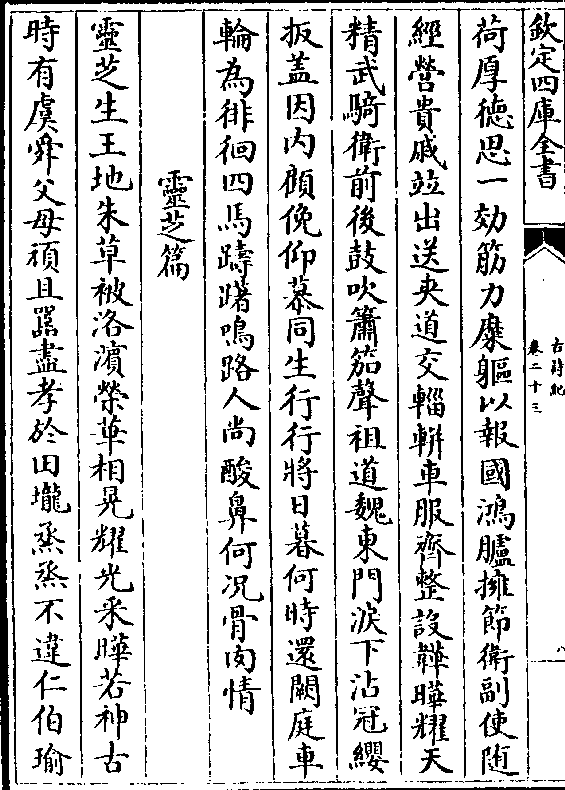 欽定四庫全書
古詩紀
卷二十三
八
荷厚德思一効筋力糜軀以報國鴻臚擁節衛副使随
經營貴戚竝出送夾道交輜軿車服齊整設韡曄耀天
精武騎衛前後鼓吹簫笳聲祖道魏東門淚下沾冠纓
扳盖因内顧俛仰慕同生行行將日暮何時還闕庭車
輪為徘徊四馬躊躇鳴路人尚酸鼻何况骨肉情
靈芝篇
靈芝生王地朱草被洛濱榮華相晃耀光采曄若神古
時有虞舜父母頑且嚚盡孝於田壠烝烝不違仁伯瑜